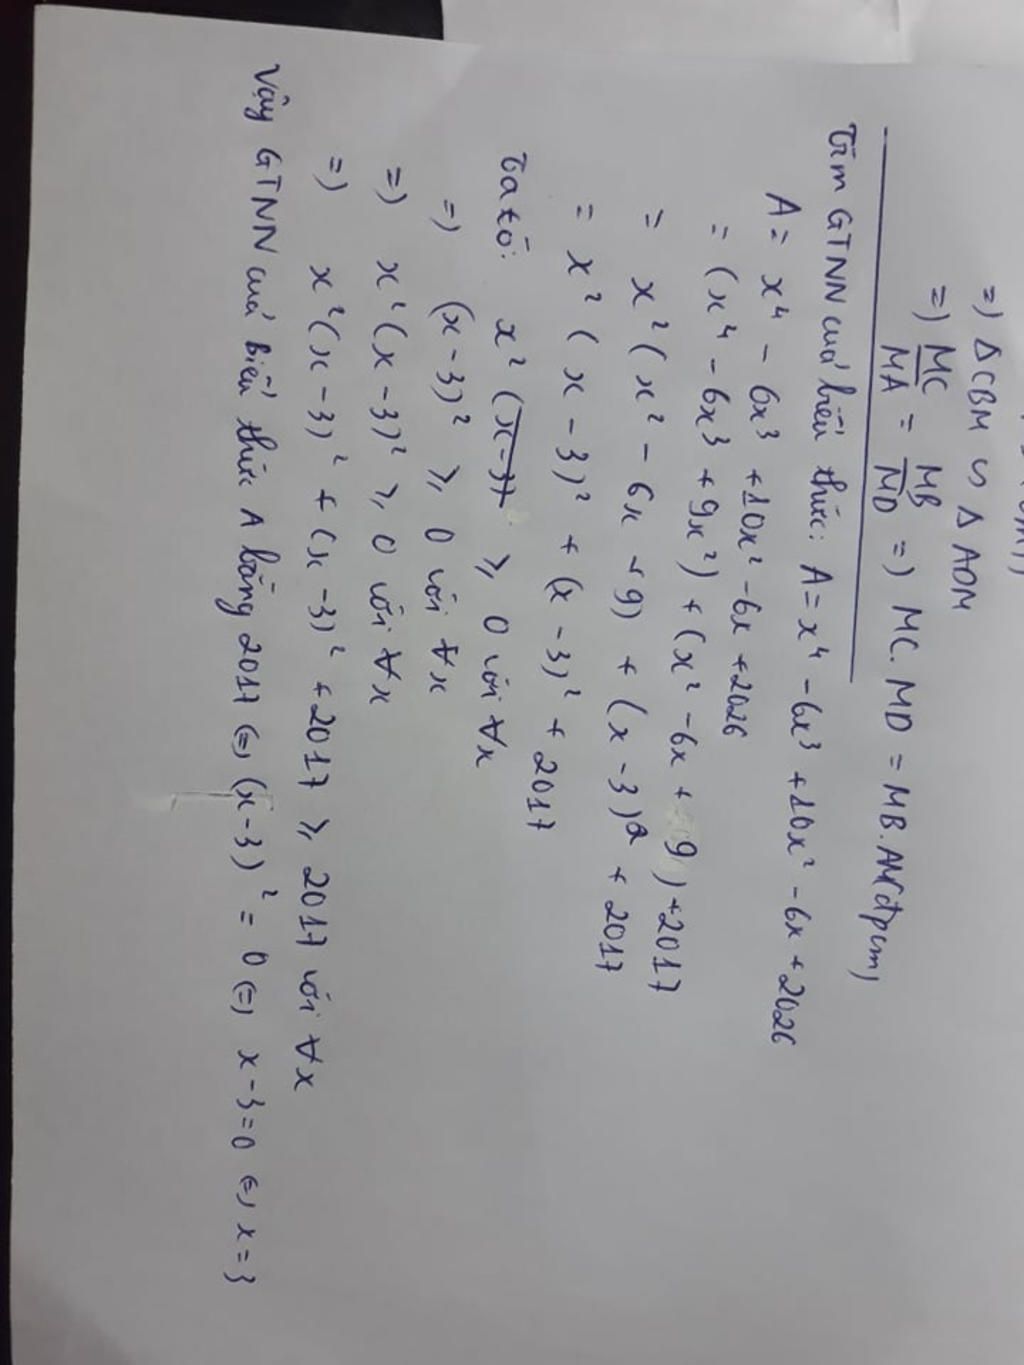 =) Δ CBM ∽ Δ ADM
=) MC/MA = MB/MD =) MC. MD = MB. AM (đpcm)
Tìm GTNN cuả biểu thức: A = x⁴ - 6x³ + 10x² - 6x + 2026
A = x⁴ - 6x³ + 10x² - 6x + 2026
= (x⁴ - 6x³ + 9x²) + (x² - 6x + 9) + 2017
= x² (x² - 6x + 9) + (x - 3)² + 2017
= x² (x - 3)² + (x - 3)² + 2017
Ta có: x² ≥ 0 với ∀x
=) (x - 3)² ≥ 0 với ∀x
=) x² (x - 3)² ≥ 0 với ∀x
=) x² (x - 3)² + (x - 3)² + 2017 ≥ 2017 với ∀x
Vậy GTNN cuả biểu thức A bằng 2017 (=) (x - 3)² = 0 (=) x - 3 = 0 (=) x = 3